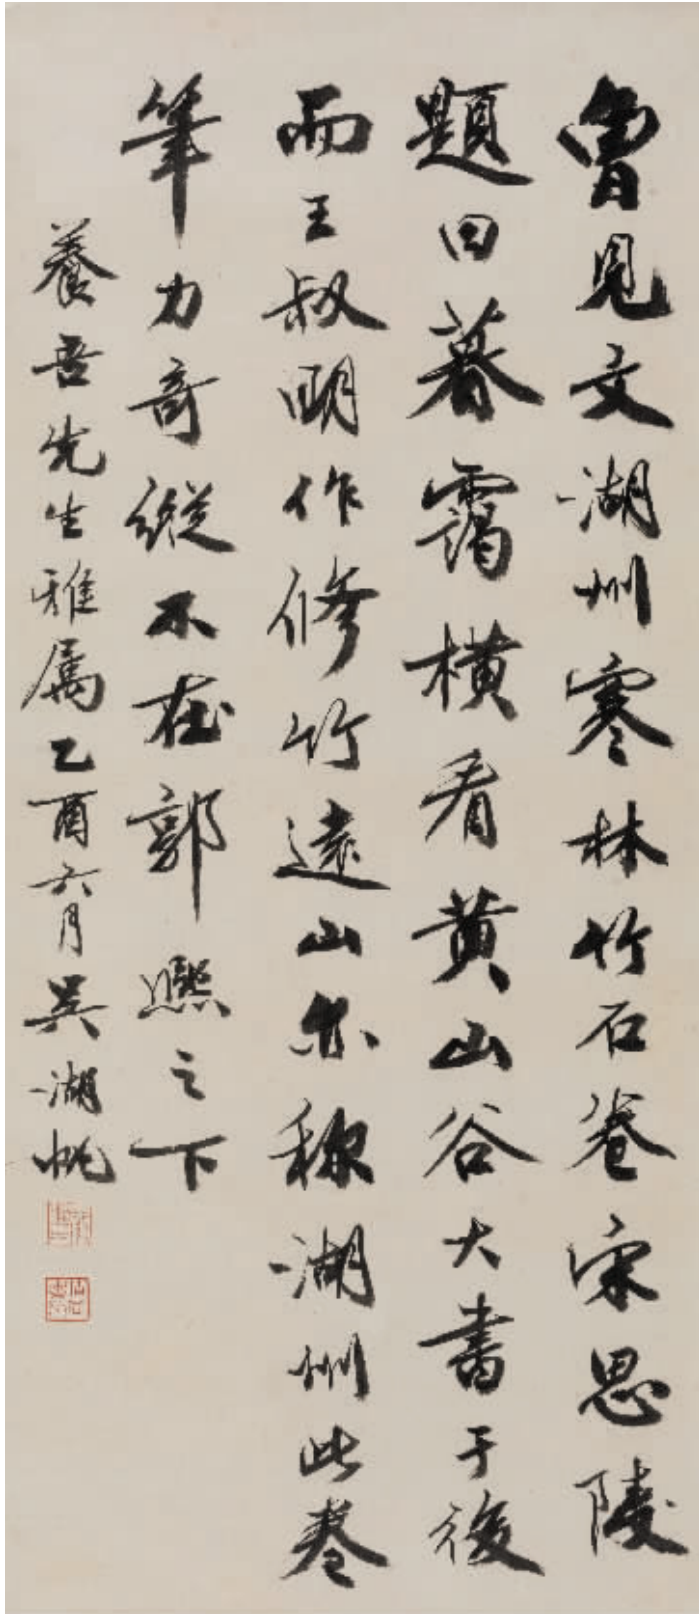 曾見文湖州寒林竹石卷宋思陵
題曰暮靄橫看黃山谷大書于後
而王叔明作修竹遠山亦稱湖州此卷
筆力奇縱不在郭熙之下
養吾先生雅屬乙酉六月吳湖帆